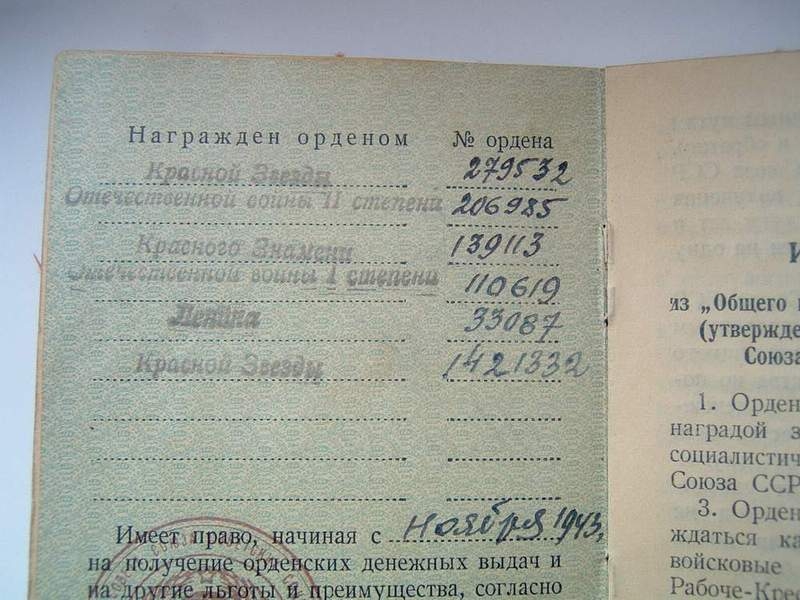 Награжден орденом № ордена
Красной Звезды 279532
Отечественной войны II степени 206985
Красного Знамени 139113
Отечественной войны I степени 110619
Ленина 33087
Красной Звезды 1421332
Имеет право, начиная с ноября 1943,
на получение орденских денежных выдач и
на другие льготы и преимущества, согласно
из „Общего
(утвержде
Союза
1. Орден
наградой з
социалистич
Союза ССР
3. Орден
ждаться ка
войсковые
Рабоче-Кре